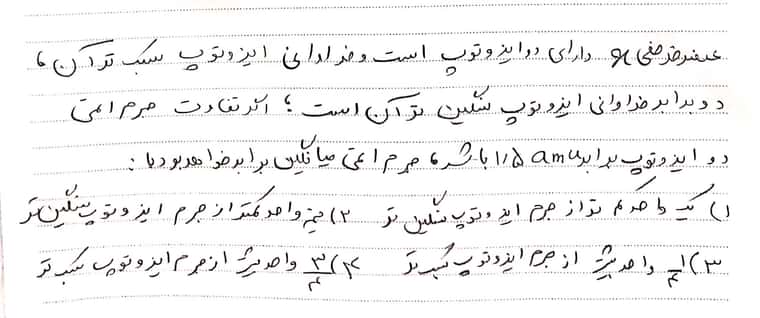 عنصر فرضی A دارای دو ایزوتوپ است و فراوانی ایزوتوپ سبک تر آن ،
دو برابر فراوانی ایزوتوپ سنگین تر آن است ؛ اگر تفاوت جرم اتمی
دو ایزوتوپ برابر ۱/۵ amu باشد ، جرم اتمی میانگین برابر خواهد بود با :
۱) یک واحد کم تر از جرم ایزوتوپ سنگین تر ۲) نیم واحد کمتر از جرم ایزوتوپ سنگین تر
۳) ۱/۴ واحد بیشتر از جرم ایزوتوپ سبک تر ۴) ۳/۴ واحد بیشتر از جرم ایزوتوپ سبک تر